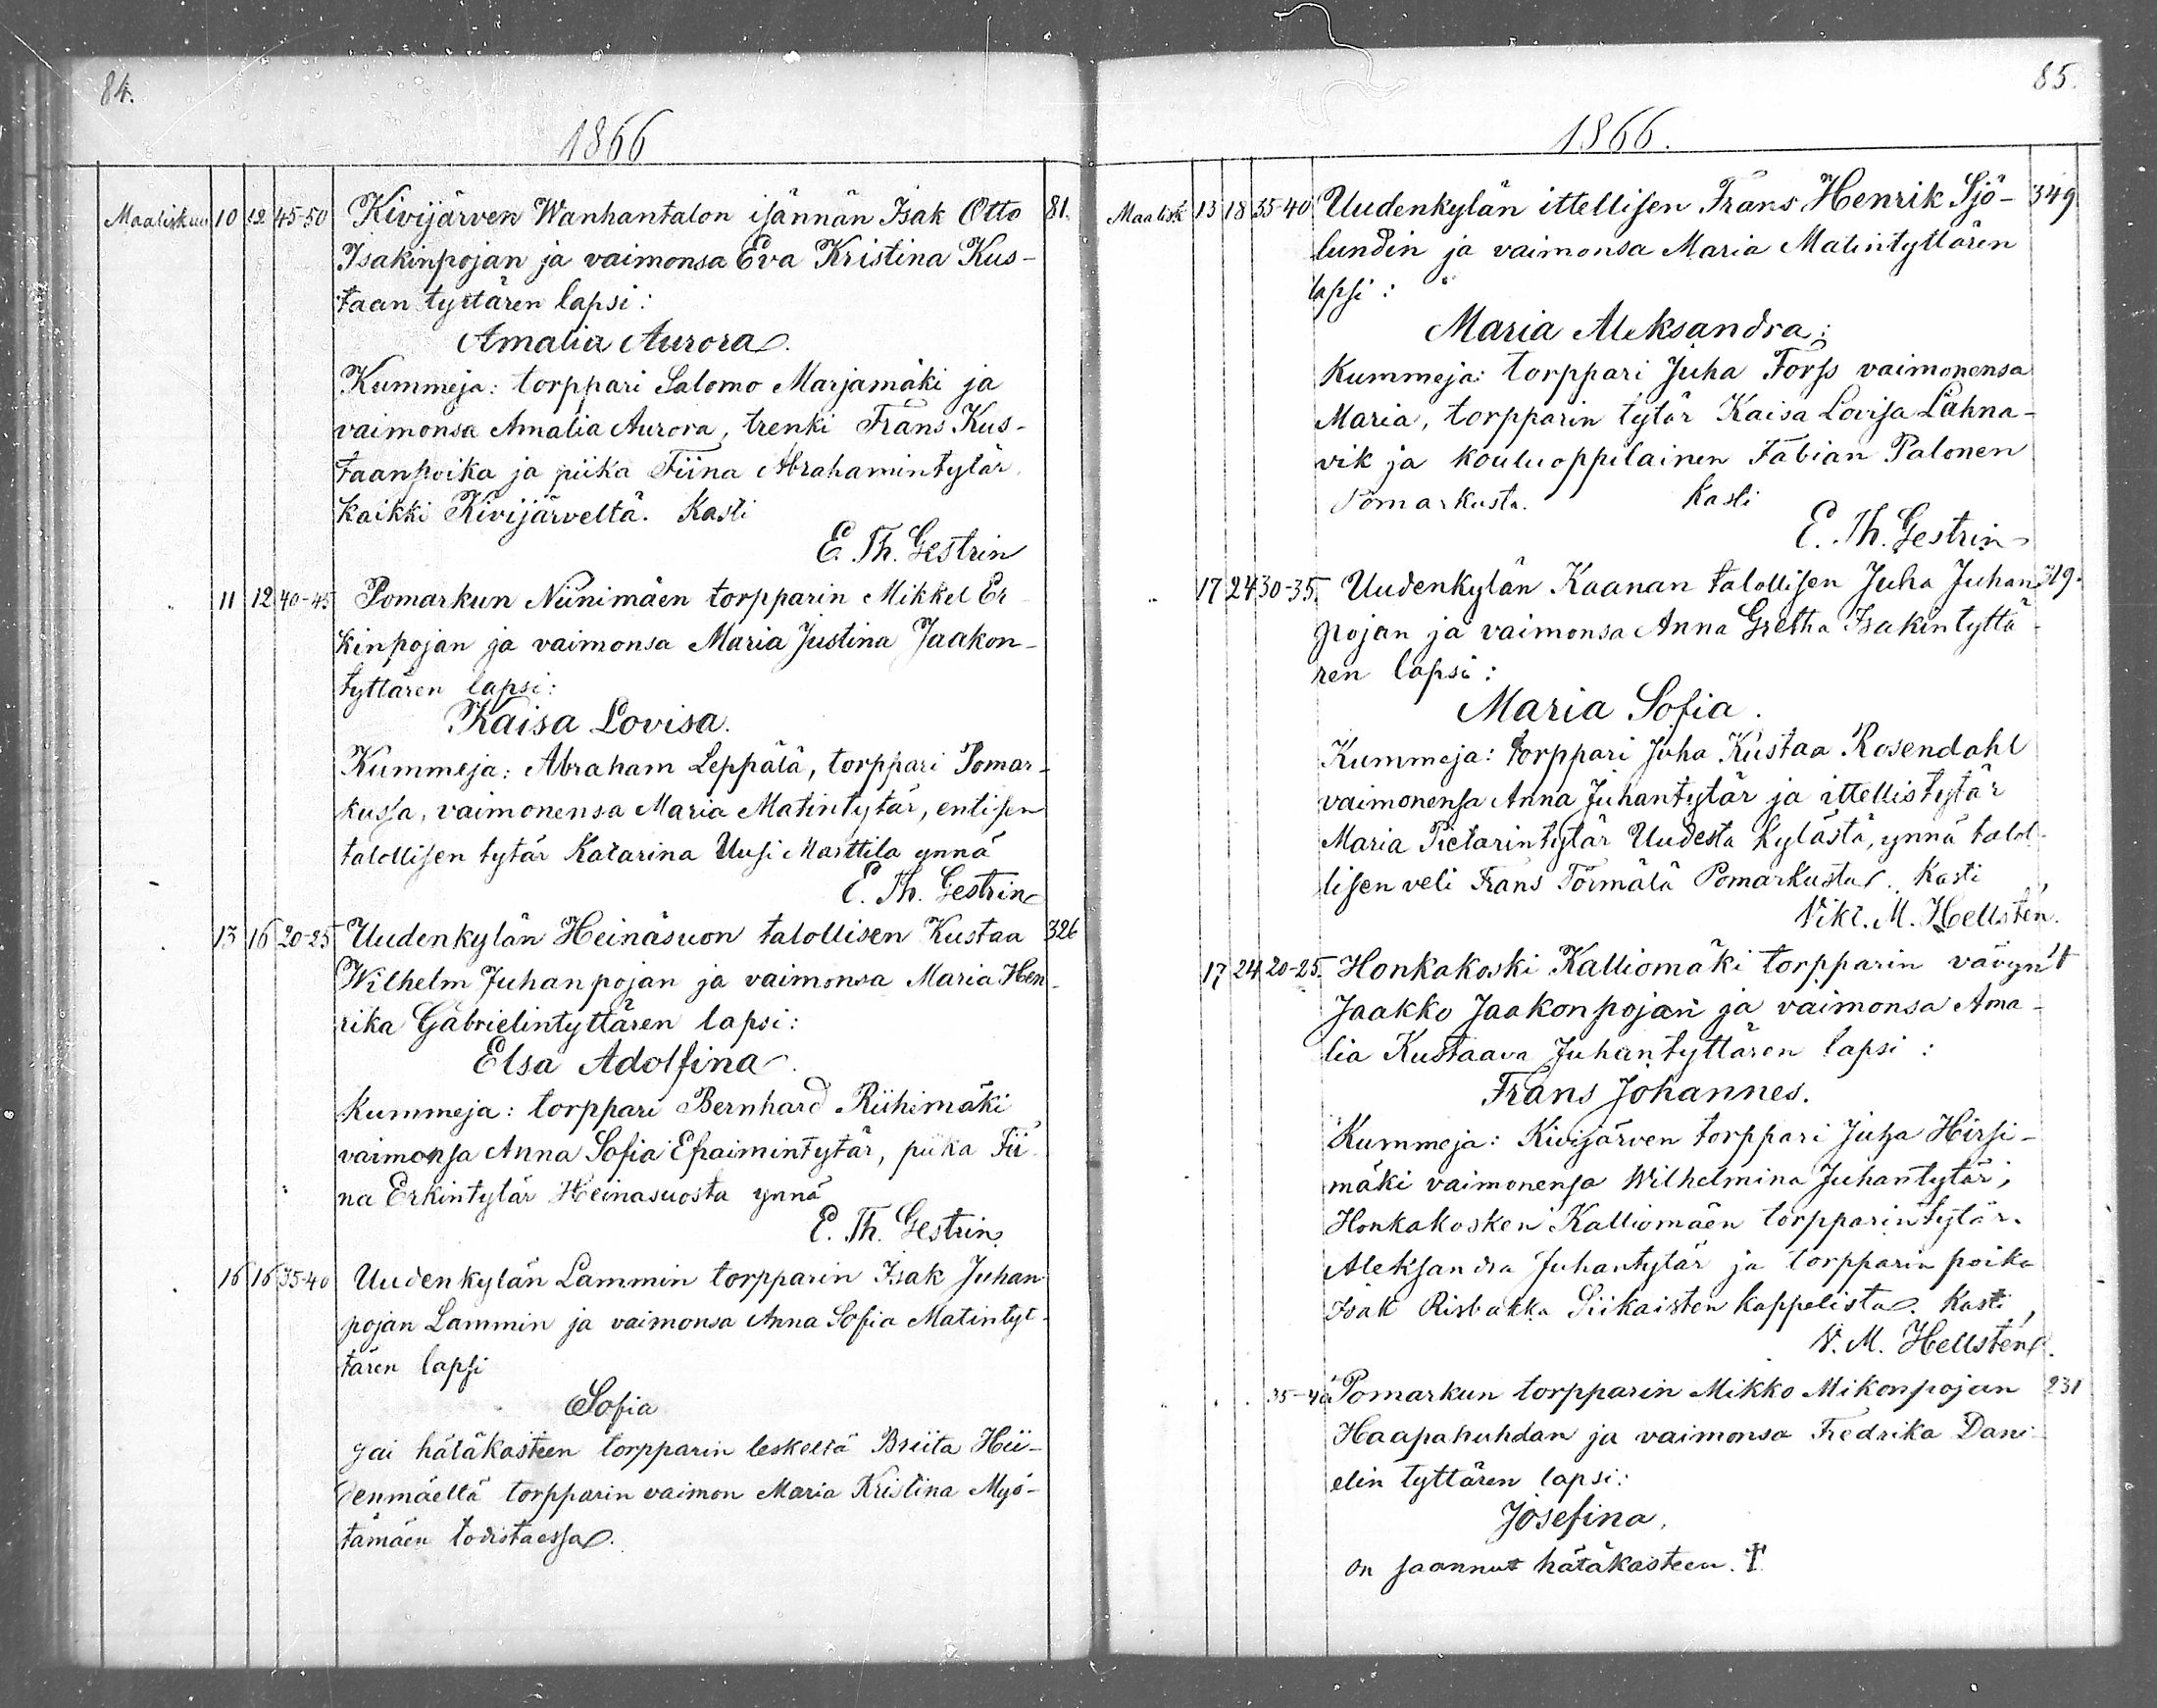 84.
1866
Maaliskuu 10 12 45-50 Kivijärven Wanhantalon isännän Isak Otto 81.
Isakinpojan ja vaimonsa Eva Kristina Kus-
taan tyttären lapsi:
Amalia Aurora.
Kummeja: torppari Salomo Marjamäki ja
vaimonsa Amalia Aurora, trenki Frans Kus-
taanpoika ja piika Fiina Abrahamintytär
kaikki Kivijärveltä. Kasti
E. Th. Gestrin
11 12 40-45 Pomarkun Niinimäen torpparin Mikkel Er-
kinpojan ja vaimonsa Maria Justina Jaakon-
tyttären lapsi:
Kaisa Lovisa.
Kummeja: Abraham Leppälä, torppari Pomar-
kussa, vaimonensa Maria Matintytär, entisen
talollisen tytär Katarina Uusi Marttila ynnä
E. Th. Gestrin
13 16 20-25 Uudenkylän Heinäsuon talollisen Kustaa 326
Wilhelm Juhanpojan ja vaimonsa Maria Hen-
rika Gabrielintyttären lapsi:
Elsa Adolfina.
Kummeja: torppari Bernhard Riihimäki
vaimonsa Anna Sofia Efraimintytär, piika Fii-
na Erkintytär Heinasuosta ynnä
E. Th. Gestrin
16 16 35-40 Uudenkylän Lammin torpparin Isak Juhan
pojan Lammin ja vaimonsa Anna Sofia Matintyt-
tären lapsi
Sofia
sai hätäkasteen torpparin leskeltä Briita Hii-
denmäeltä torpparin vaimon Maria Kristina Myö-
tämäen todistaessa.
85.
1866.
Maalisk 13 18 35-40 Uudenkylän ittellisen Frans Henrik Sjö- 349
lundin ja vaimonsa Maria Matintyttären
lapsi:
Maria Aleksandra:
Kummeja: torppari Juha Forss vaimonensa
Maria, torpparin tytär Kaisa Lovisa Lahna-
vik ja kouluoppilainen Fabian Palonen
Pomarkusta. Kasti
E. Th. Gestrin
17 24 30-35. Uudenkylän Kaanan talollisen Juha Juhan 319.
pojan ja vaimonsa Anna Gretha Isakintyttä-
ren lapsi:
Maria Sofia.
Kummeja: torppari Juha Kustaa Rosendahl
vaimonensa Anna Juhantytär ja ittellistytär
Maria Pietarintytär Uudesta kylästä, ynnä talol-
lisen veli Frans Törmälä Pomarkusta. Kasti
Vikt. M. Hellsten.
17 24 20-25. Honkakoski Kalliomäki torpparin vävyn
Jaakko Jaakonpojan ja vaimonsa Ama-
lia Kustaava Juhantyttären lapsi:
Frans Johannes.
Kummeja: Kivijärven torppari Juha Hirsi-
mäki vaimonensa Wilhelmina Juhantytär,
Honkakosken Kalliomäen torpparintytär.
Aleksandra Juhantytär ja torpparin poika
Isak Risbakka Siikaisten kappelista. Kasti,
V. M. Hellsten.
35-40 Pomarkun torpparin Mikko Mikonpojan 231
Haapahuhdan ja vaimonsa Fredrika Dani-
elin tyttären lapsi:
Josefina,
on saannut hätäkasteen. †